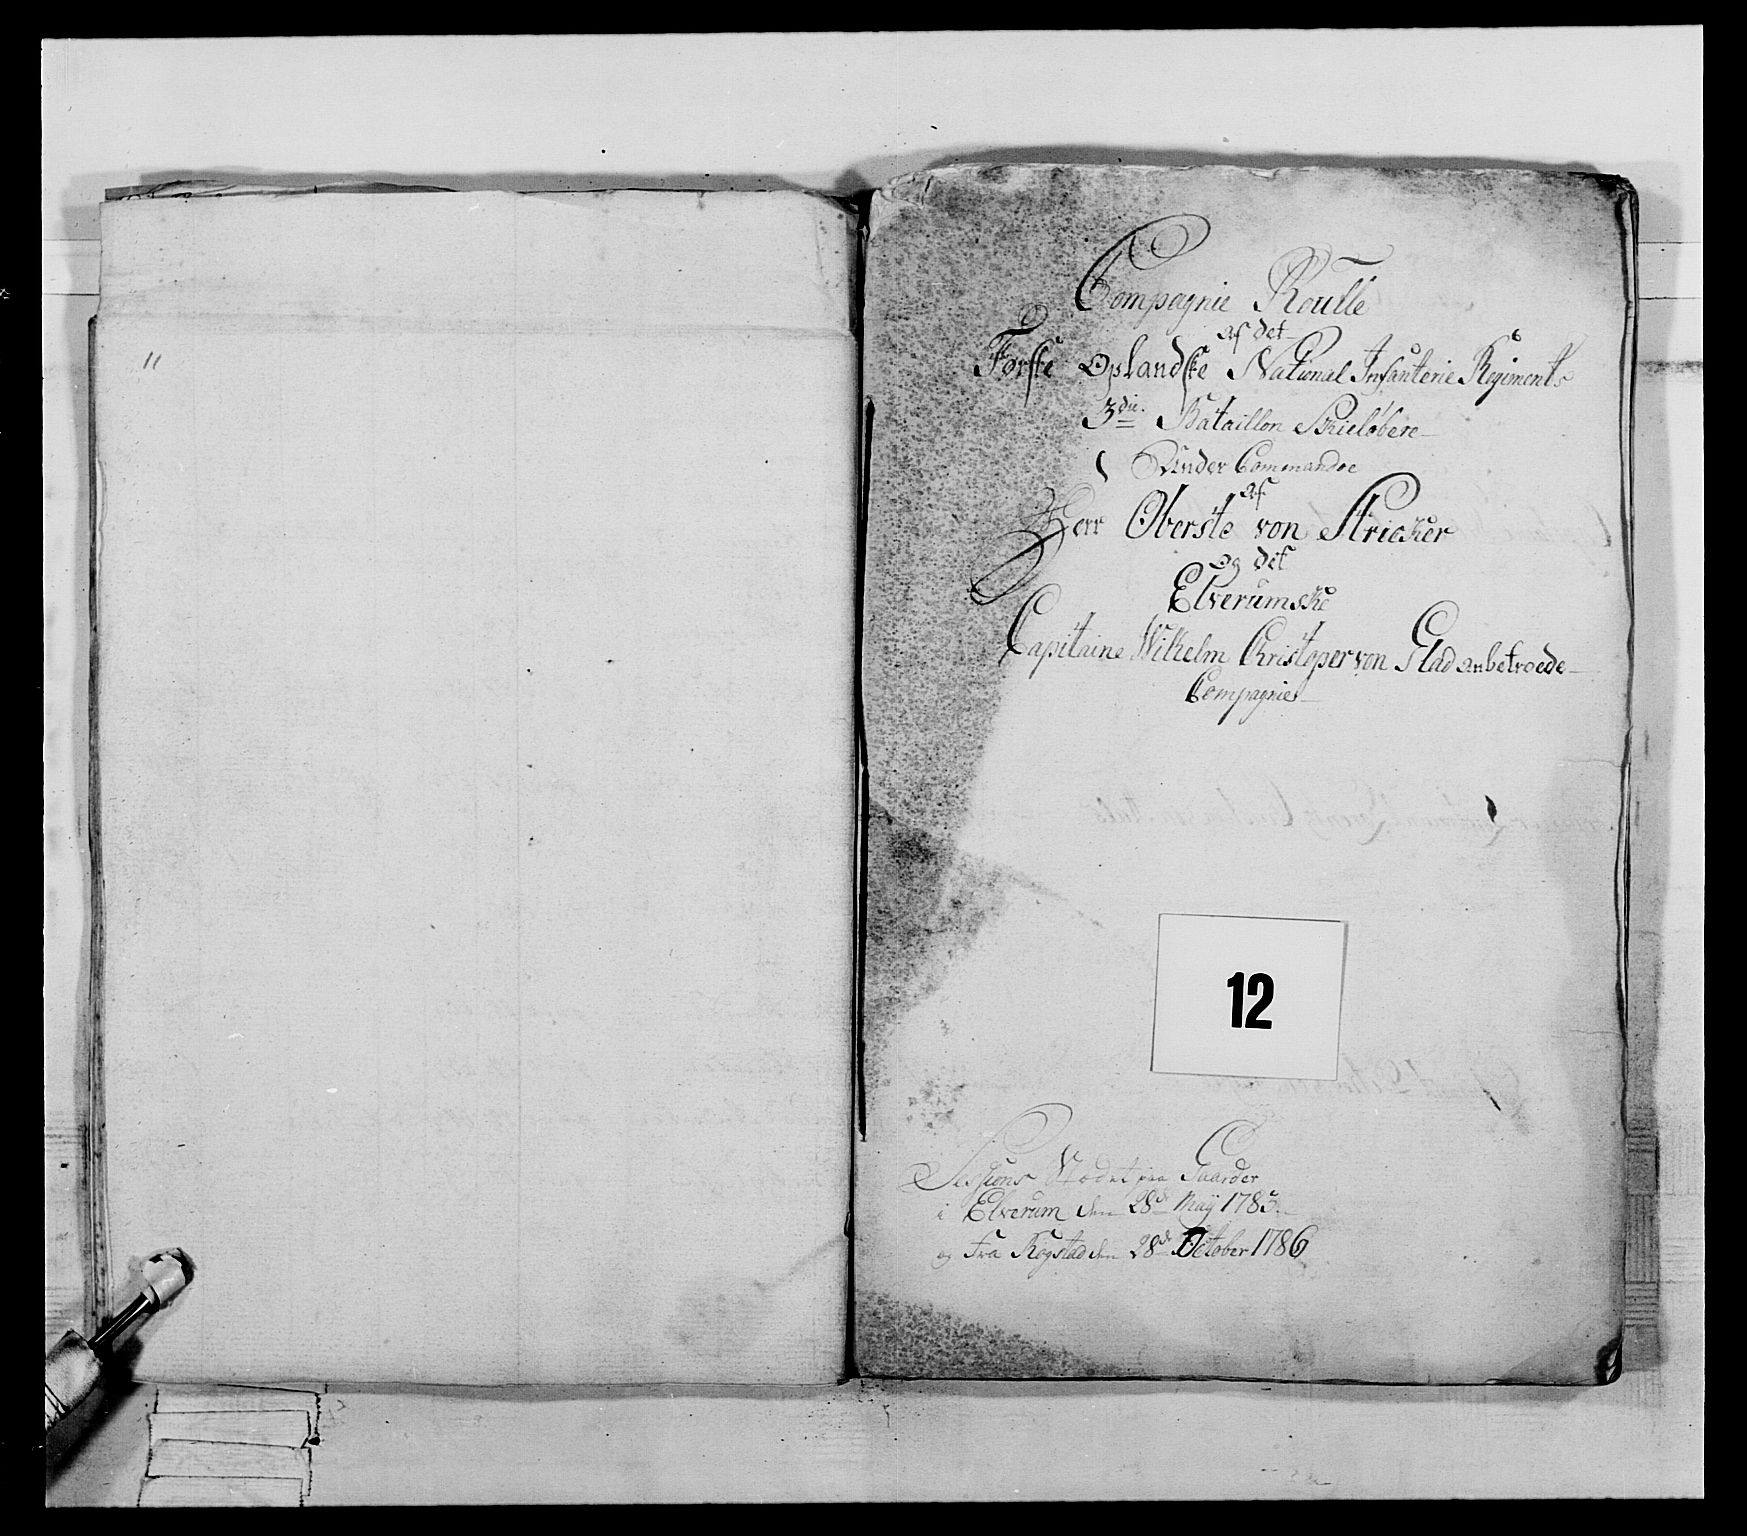 11
Compagnie Roulle
af det
Første Oplandske National Infanterie Regiments
3die Bataillon Skieløbere
Under Commandoe
af
Herr Oberste von Stricker
og det
Elverumske
Capitaine Wilhelm Christoper von Glad anbetroede
Compagnie
12
Sessions Mødet paa Gaarder
i Elverum den 28de Maÿ 1785.
og fra Kogstad den 28de October 1786